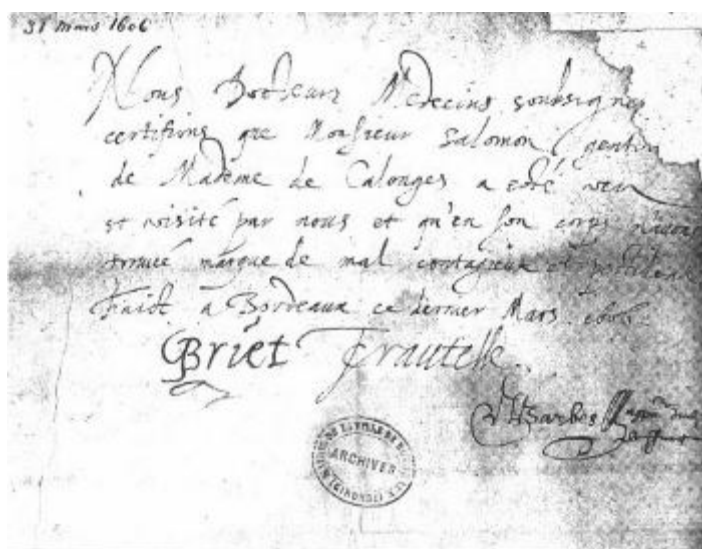 31 mars 1606
Nous Docteurs Medecins soubsignes
certifions que Monsieur Salomon gentil
de Madame de Calonges a esté veu
et visité par nous et qu'en son corps n'avons
trouvé marque de mal contagieux et pestilent
Faict a Bordeaux ce dernier Mars
Briet
ARCHIVES